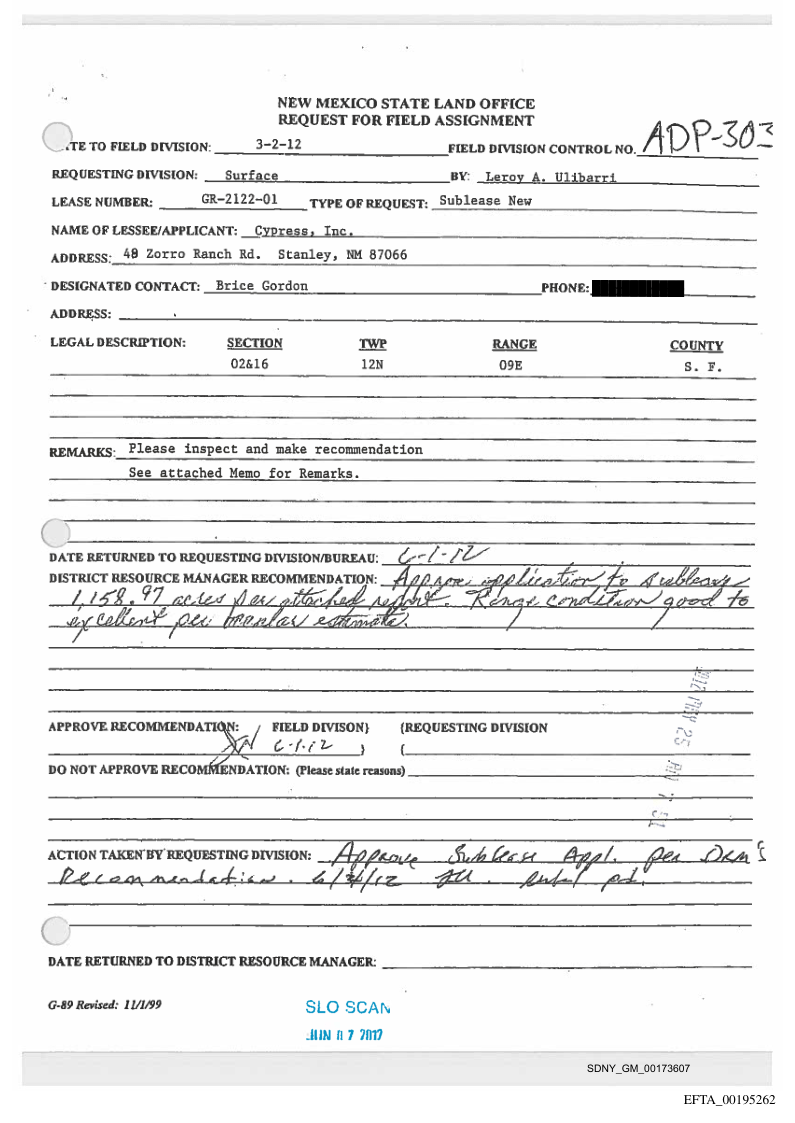 NEW MEXICO STATE LAND OFFICE
REQUEST FOR FIELD ASSIGNMENT
TE TO FIELD DIVISION: 3-2-12 FIELD DIVISION CONTROL NO. ADP-303
REQUESTING DIVISION: Surface BY: Leroy A. Ulibarri
LEASE NUMBER: GR-2122-01 TYPE OF REQUEST: Sublease New
NAME OF LESSEE/APPLICANT: Cypress, Inc.
ADDRESS: 48 Zorro Ranch Rd. Stanley, NM 87066
DESIGNATED CONTACT: Brice Gordon PHONE:
ADDRESS:
LEGAL DESCRIPTION: SECTION TWP RANGE COUNTY
02&16 12N 09E S. F.
REMARKS: Please inspect and make recommendation
See attached Memo for Remarks.
DATE RETURNED TO REQUESTING DIVISION/BUREAU: 6-1-12
DISTRICT RESOURCE MANAGER RECOMMENDATION: Approve application to sublease
1,158.97 acres per attached report. Range condition good to
excellent per estimate.
APPROVE RECOMMENDATION: FIELD DIVISON} {REQUESTING DIVISION
6-1-12 } {
DO NOT APPROVE RECOMMENDATION: (Please state reasons)
ACTION TAKEN BY REQUESTING DIVISION: Approve Sublease Appl. per DRM's
Recommendation. rental pd.
DATE RETURNED TO DISTRICT RESOURCE MANAGER:
G-89 Revised: 11/1/99
SLO SCAN
JUN 07 2012
SDNY_GM_00173607
EFTA_00195262